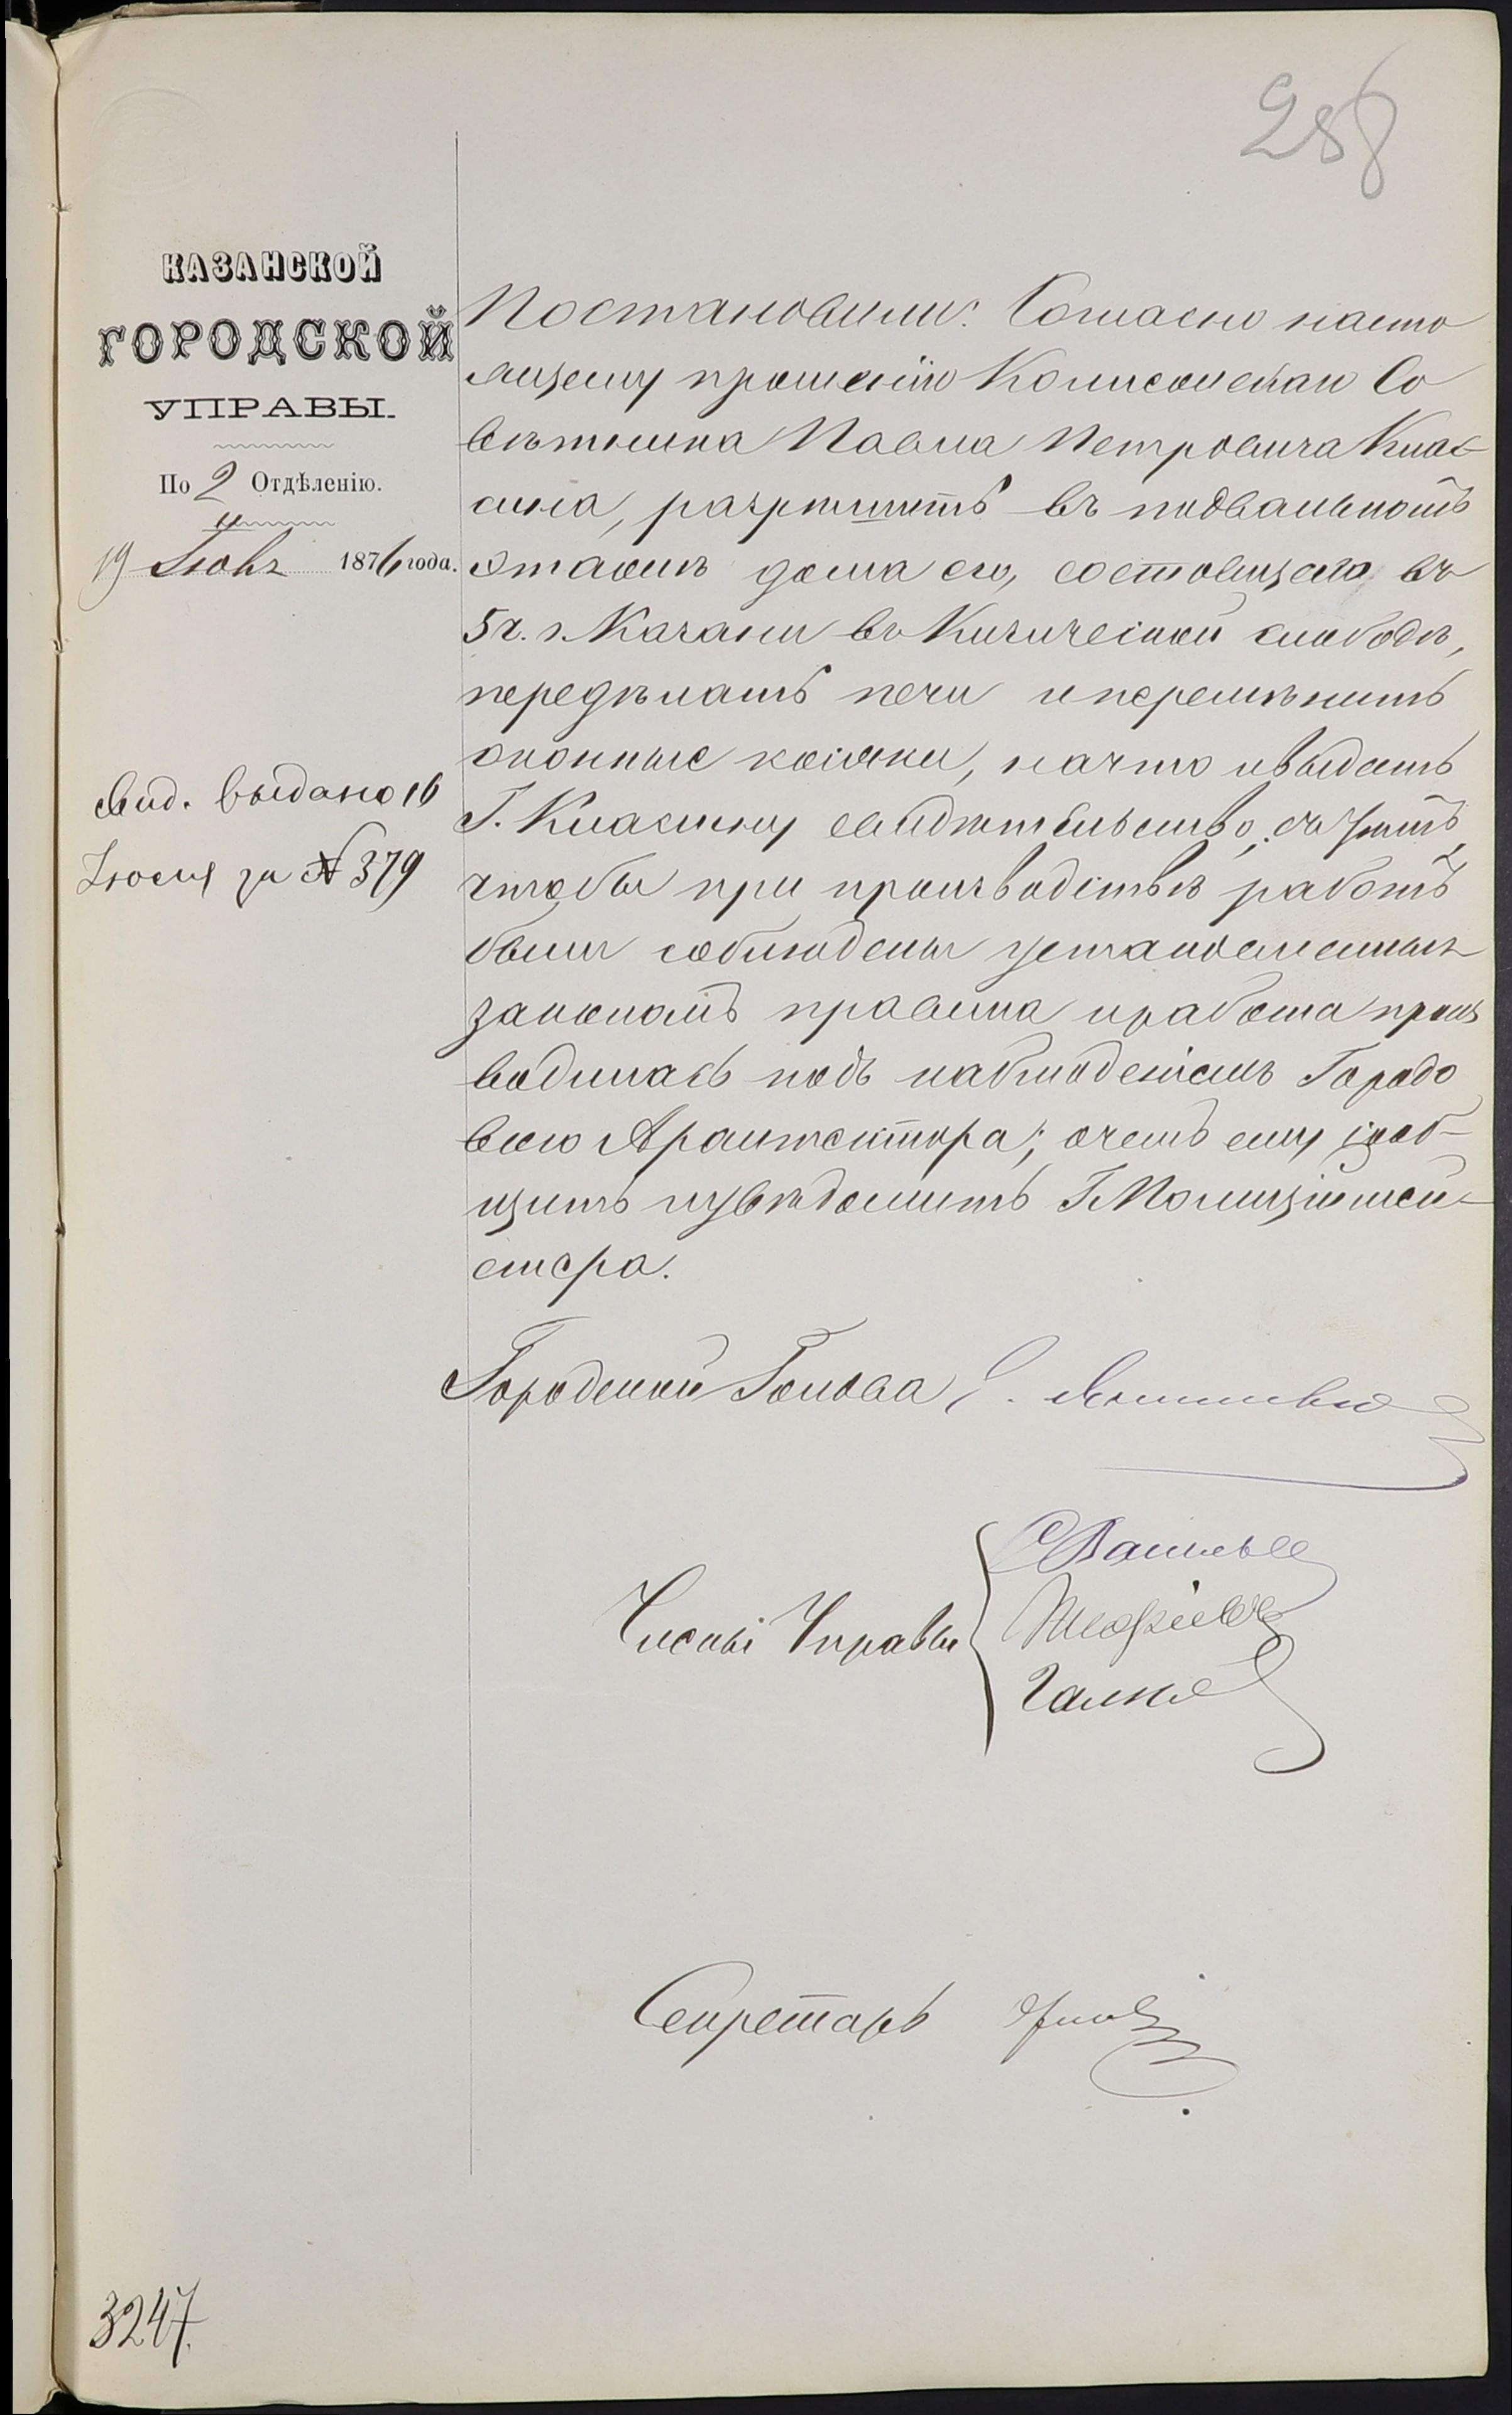 258
КАЗАНСКОЙ
ГОРОДСКОЙ
УПРАВЫ.
По 2 Отдѣленію.
19 Іюня 1876 года.
Свид. выдано 16
Іюля за № 379
Постановили: Согласно насто
ящему прошенію Колежскаго Со
вѣтника Павла Петровича Клас
сина, разрѣшить въ подвальномъ
этажѣ дома его, состоящаго въ
5 ч. г. Казани въ Кизической слободѣ,
передѣлать печи и перемѣнить
оконные косяки, на что и выдать
Г. Классину свидѣтельство, съ тѣмъ,
чтобы при производствѣ работъ
были соблюдены установленныя
закономъ правила и работа произ
водилась подъ наблюденіемъ Городо
ваго Архитектора; о чемъ ему сооб-
щить и увѣдомить Г. Полиціймей-
стера.
Городской Голова
Члены Управы
Галкин
Секретарь
3247.